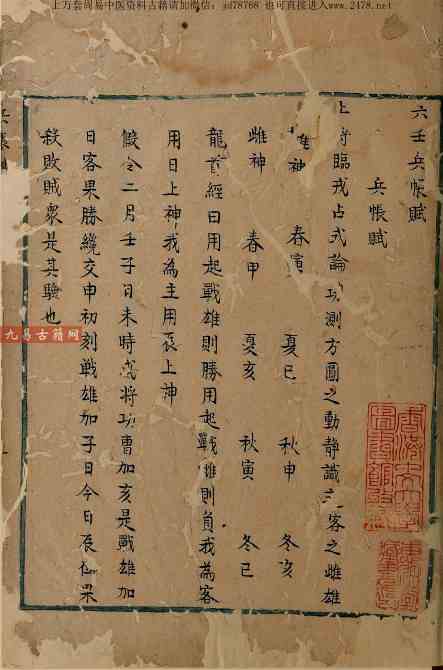 上万套周易中医资料古籍请加微信：sd78768 也可直接进入www.2478.net
六壬兵帳賦
兵帳賦
上將臨戎占式論功測方圓之動靜識主客之雌雄
雄神 春寅 夏巳 秋申 冬亥
雌神 春甲 夏亥 秋寅 冬巳
龍首經曰用起戰雄則勝用起戰雌則負我為客
用日上神我為主用辰上神
假令二月壬子日未時 將功曹加亥是戰雄加
日客果勝纔交申初刻戰雄加子日今日辰 果
殺敗賊眾是其驗也
兵帳
九易古籍网